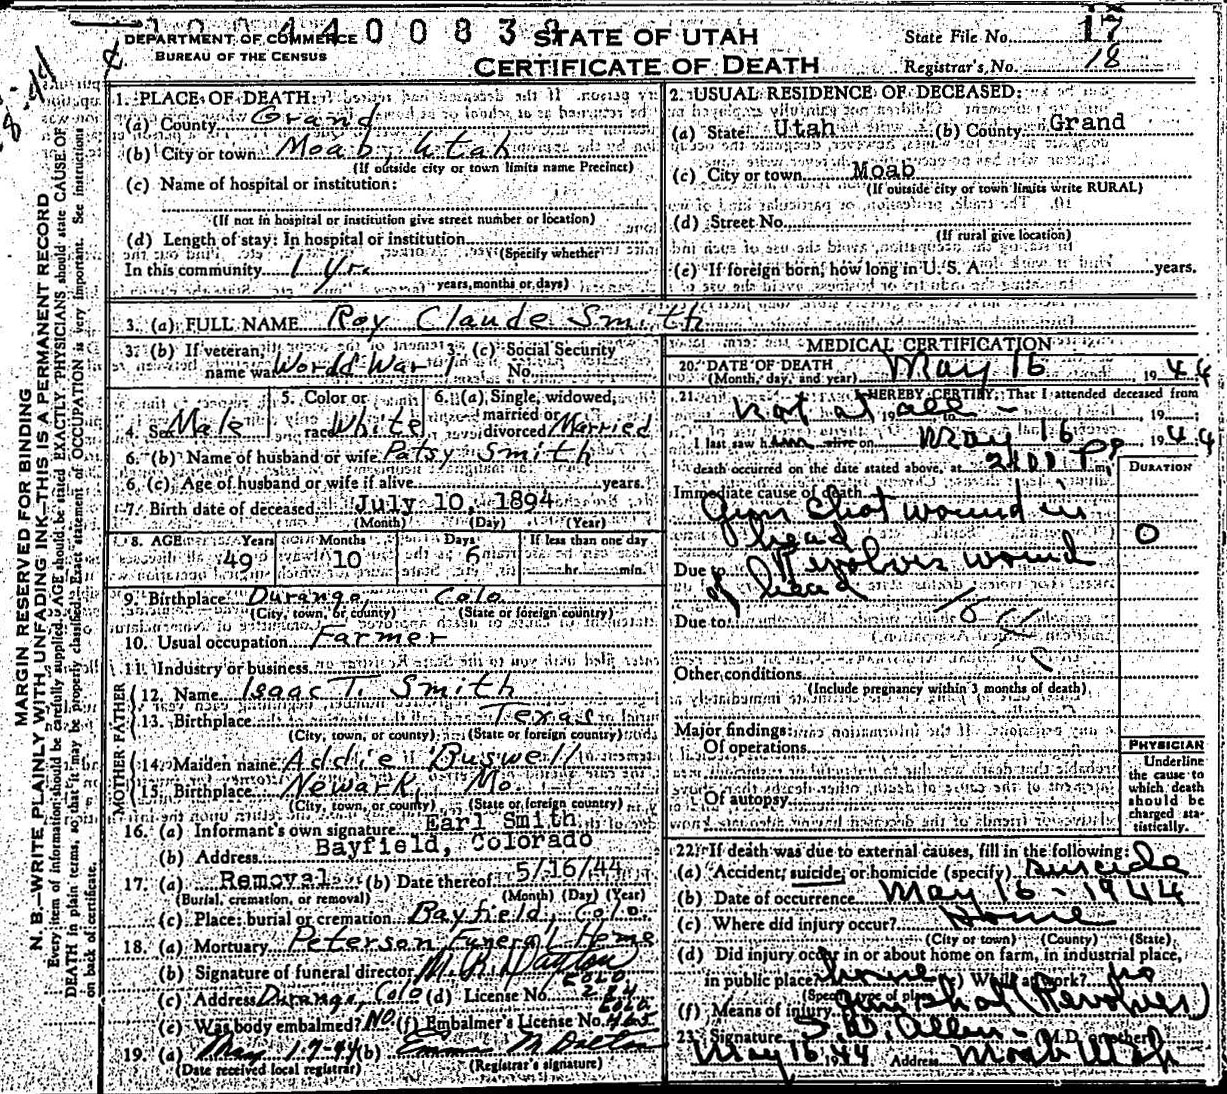 DEPARTMENT OF COMMERCE
BUREAU OF THE CENSUS
STATE OF UTAH
CERTIFICATE OF DEATH
State File No. 17
Registrar's No. 18
MARGIN RESERVED FOR BINDING
N. B.—WRITE PLAINLY WITH UNFADING INK—THIS IS A PERMANENT RECORD
Every item of information should be carefully supplied. AGE should be stated EXACTLY. PHYSICIANS should state CAUSE OF
DEATH in plain terms, so that it may be properly classified. Exact statement of OCCUPATION is very important. See instructions
on back of certificate.
1. PLACE OF DEATH:
(a) County Grand
(b) City or town Moab, Utah
(If outside city or town limits name Precinct)
(c) Name of hospital or institution:
(If not in hospital or institution give street number or location)
(d) Length of stay: In hospital or institution
(Specify whether
In this community 1 Yr.
years, months or days)
2. USUAL RESIDENCE OF DECEASED:
(a) State Utah (b) County Grand
(c) City or town Moab
(If outside city or town limits write RURAL)
(d) Street No.
(If rural give location)
(e) If foreign born, how long in U. S. A. years.
3. (a) FULL NAME Roy Claude Smith
3. (b) If veteran, name war World War 1
3. (c) Social Security No.
4. Sex Male
5. Color or race White
6. (a) Single, widowed, married or divorced Married
6. (b) Name of husband or wife Patsy Smith
6. (c) Age of husband or wife if alive years.
7. Birth date of deceased July 10, 1894
(Month) (Day) (Year)
8. AGE Years Months Days If less than one day
49 10 6 hr. min.
9. Birthplace Durango, Colo
(City, town, or county) (State or foreign country)
10. Usual occupation Farmer
11. Industry or business
FATHER
12. Name Isaac T. Smith
13. Birthplace Texas
(City, town, or county) (State or foreign country)
MOTHER
14. Maiden name Addie Buswell
15. Birthplace Newark, Mo
(City, town, or county) (State or foreign country)
16. (a) Informant's own signature Earl Smith
(b) Address Bayfield, Colorado
17. (a) Removal (b) Date thereof 5/16/44
(Burial, cremation, or removal) (Month) (Day) (Year)
(c) Place: burial or cremation Bayfield, Colo.
18. (a) Mortuary Peterson Funeral Home
(b) Signature of funeral director M. R. Dayton
(c) Address Durango, Colo (d) License No.
(e) Was body embalmed? NO (f) Embalmer's License No. 465
19. (a) May 17-44 (b)
(Date received local registrar) (Registrar's signature)
MEDICAL CERTIFICATION
20. DATE OF DEATH May 16 1944
(Month, day, and year)
21. I HEREBY CERTIFY: That I attended deceased from
Not at all - 19 19
I last saw him alive on May 16 1944
death occurred on the date stated above, at 2:00 P m.
DURATION
Immediate cause of death
Gun Shot wound in
head 0
Due to Revolver wound
of head
Due to
Other conditions
(Include pregnancy within 3 months of death)
Major findings:
Of operations
Of autopsy
PHYSICIAN
Underline
the cause to
which death
should be
charged sta-
tistically.
22. If death was due to external causes, fill in the following:
(a) Accident, suicide, or homicide (specify) suicide
(b) Date of occurrence May 16 - 1944
(c) Where did injury occur? Home
(City or town) (County) (State)
(d) Did injury occur in or about home on farm, in industrial place,
in public place? home While at work? no
(Specify type of place)
(f) Means of injury gun shot (Revolver)
23. Signature Allen M.D. or other
May 16, 1944 Address Moab Utah